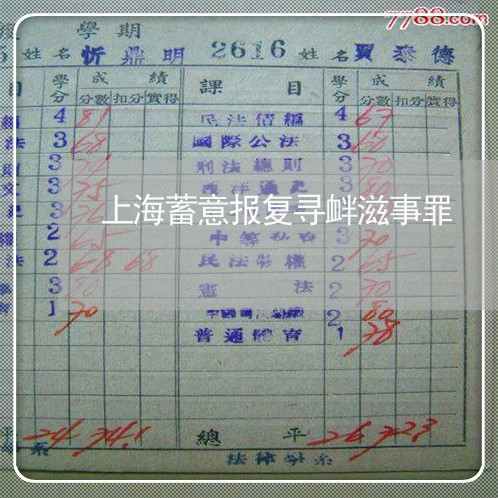 7788.com
學期
姓名 忻鼎明 2616 姓名 賈泰德
目 學分 成績 課目 學分 成績
分數 扣分 實得 分數 扣分 實得
4 81 民法債編 4 67
法 3 68 國際公法 3 60
3 刑法總則 3 70
3 75 西洋通史 3 80
3
上海蓄意报复寻衅滋事罪
2 65 3 70
法 2 68 68 民法物權 2 65
3 80 憲法 2 70
1 70 2 80
普通體育 1 78
平 24 74.1 總平 26 72.3
系 法律學系